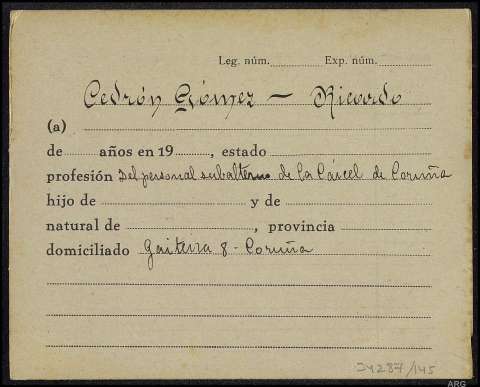 Leg. núm. Exp. núm.
Cedrón Gómez — Ricardo
(a)
de años en 19 , estado
profesión Del personal subalterno de la Cárcel de Coruña
hijo de y de
natural de , provincia
domiciliado Gaiteira 8 - Coruña
24287/145
ARG